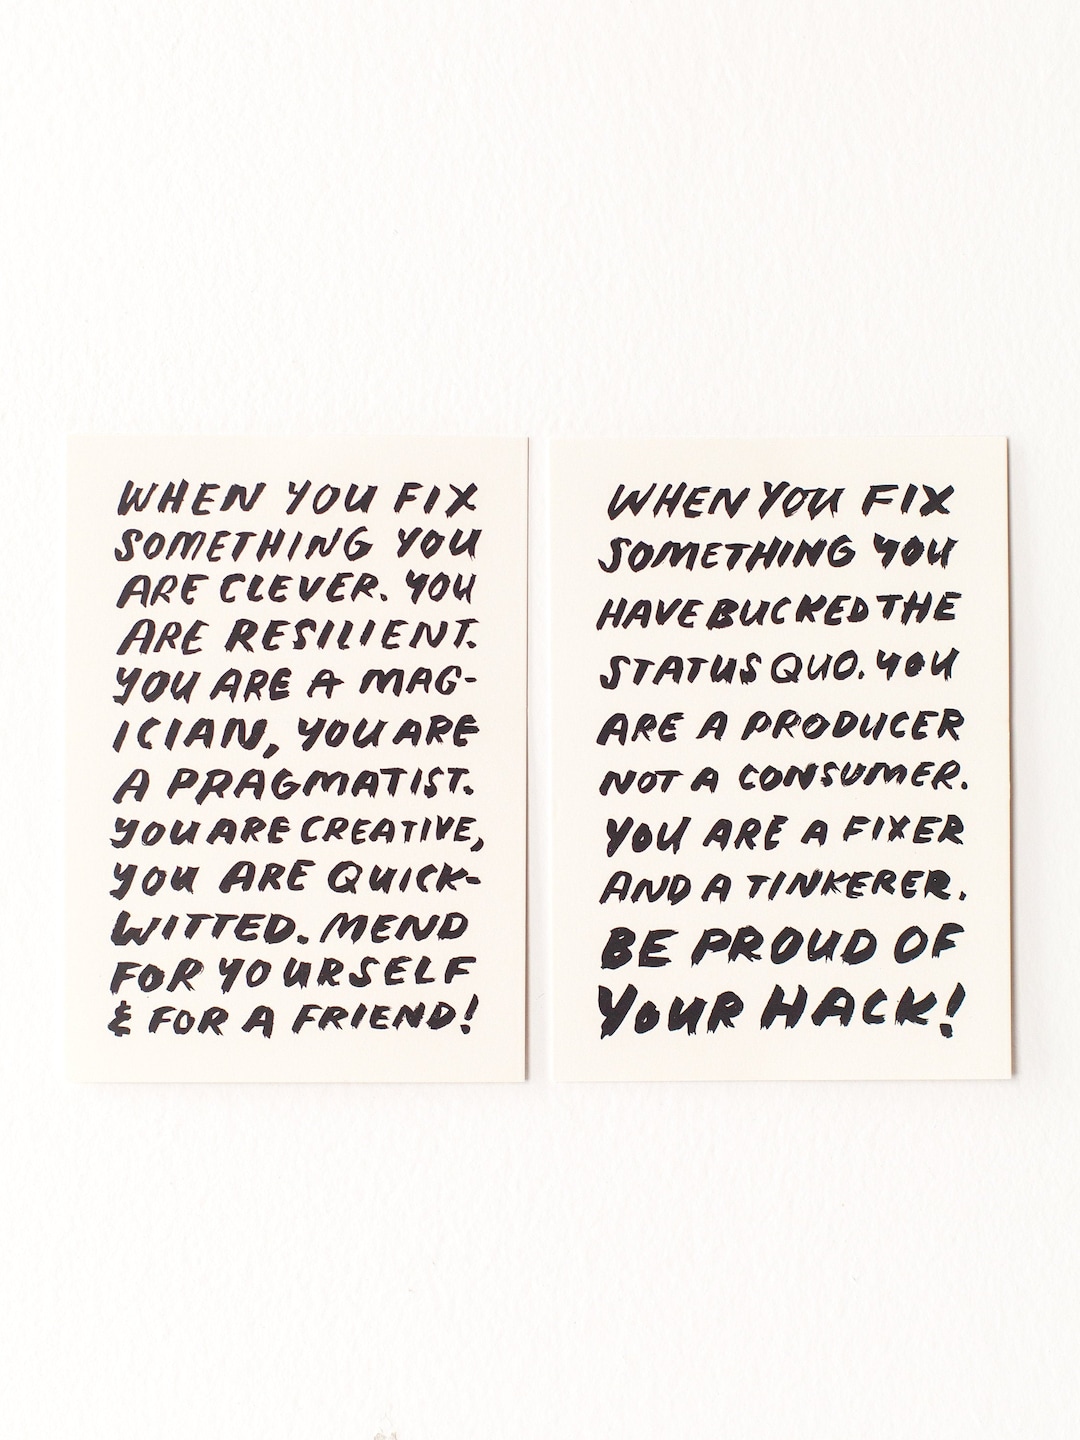 WHEN YOU FIX
SOMETHING YOU
ARE CLEVER. YOU
ARE RESILIENT.
YOU ARE A MAG-
ICIAN, YOU ARE
A PRAGMATIST.
YOU ARE CREATIVE,
YOU ARE QUICK-
WITTED. MEND
FOR YOURSELF
& FOR A FRIEND!
WHEN YOU FIX
SOMETHING YOU
HAVE BUCKED THE
STATUS QUO. YOU
ARE A PRODUCER
NOT A CONSUMER.
YOU ARE A FIXER
AND A TINKERER.
BE PROUD OF
YOUR HACK!